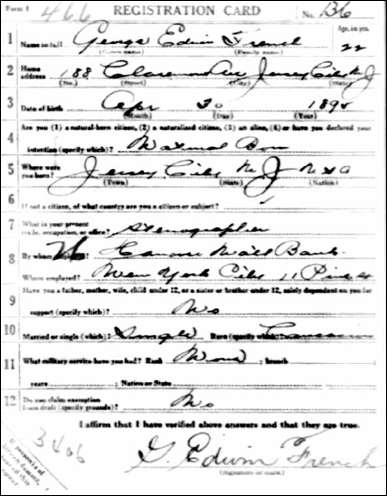 Form 1 466 REGISTRATION CARD No. 136
1 Name in full George Edwin French Age, in yrs. 22
(Given name) (Family name)
2 Home address 188 Claremont Av Jersey City N J
(No.) (Street) (City) (State)
3 Date of birth Apr
(Month) (Day) (Year)
4 Are you (1) a natural-born citizen, (2) a naturalized citizen, (3) an alien, (4) or have you declared your
intention (specify which)? Natural Born
5 Where were you born? Jersey City N. J
(Town) (State) (Nation)
6 If not a citizen, of what country are you a citizen or subject?
7 What is your present trade, occupation, or office? Stenographer
8 By whom employed? Bank
Where employed? New York City 11 Pine St
9 Have you a father, mother, wife, child under 12, or a sister or brother under 12, solely dependent on you for
support (specify which)? No
10 Married or single (which)? Single Race (specify which)? Caucasian
11 What military service have you had? Rank None ; branch
years ; Nation or State
12 Do you claim exemption from draft (specify grounds)? No
I affirm that I have verified above answers and that they are true.
3406
G. Edwin French
(Signature or mark)